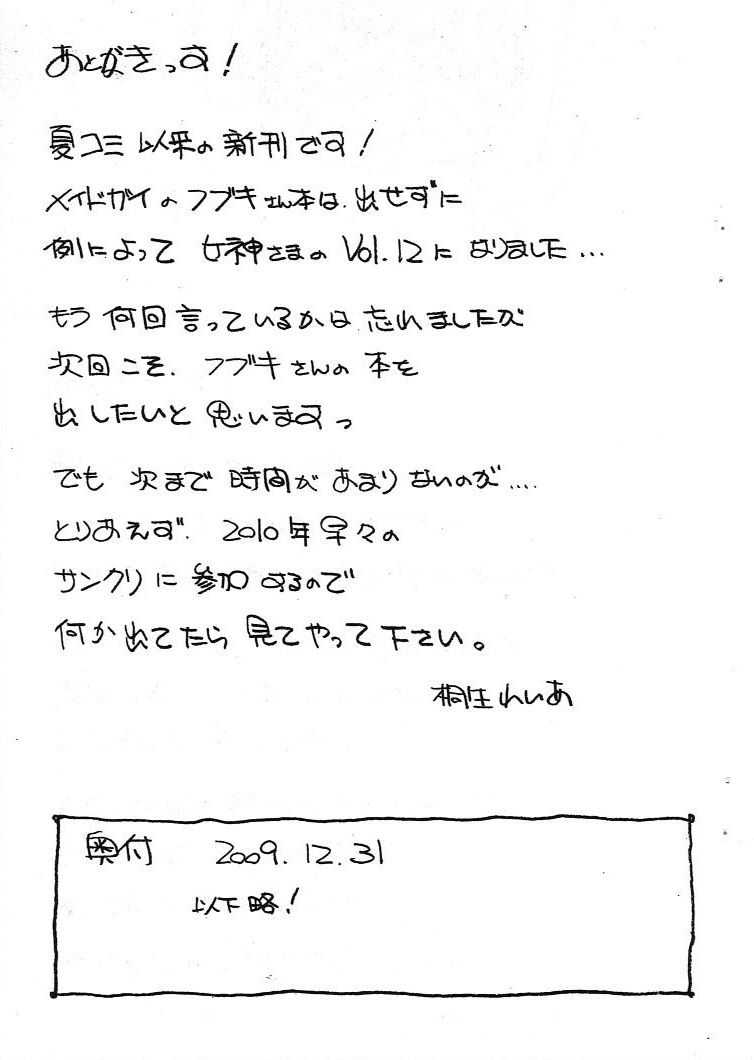 あとがきっす！
夏コミ以来の新刊です！
メイドガイのフブキさん本は、出せずに
例によって 女神さまの Vol.12に なりました…
もう何回言っているかは 忘れましたが
次回こそ、フブキさんの 本を
出したいと 思いますっ
でも 次まで 時間が あまりないのが‥‥
とりあえず、2010年早々の
サンクリに 参加するので
何か出てたら 見てやって下さい。
桐生れいあ
奥付 2009.12.31
以下略！